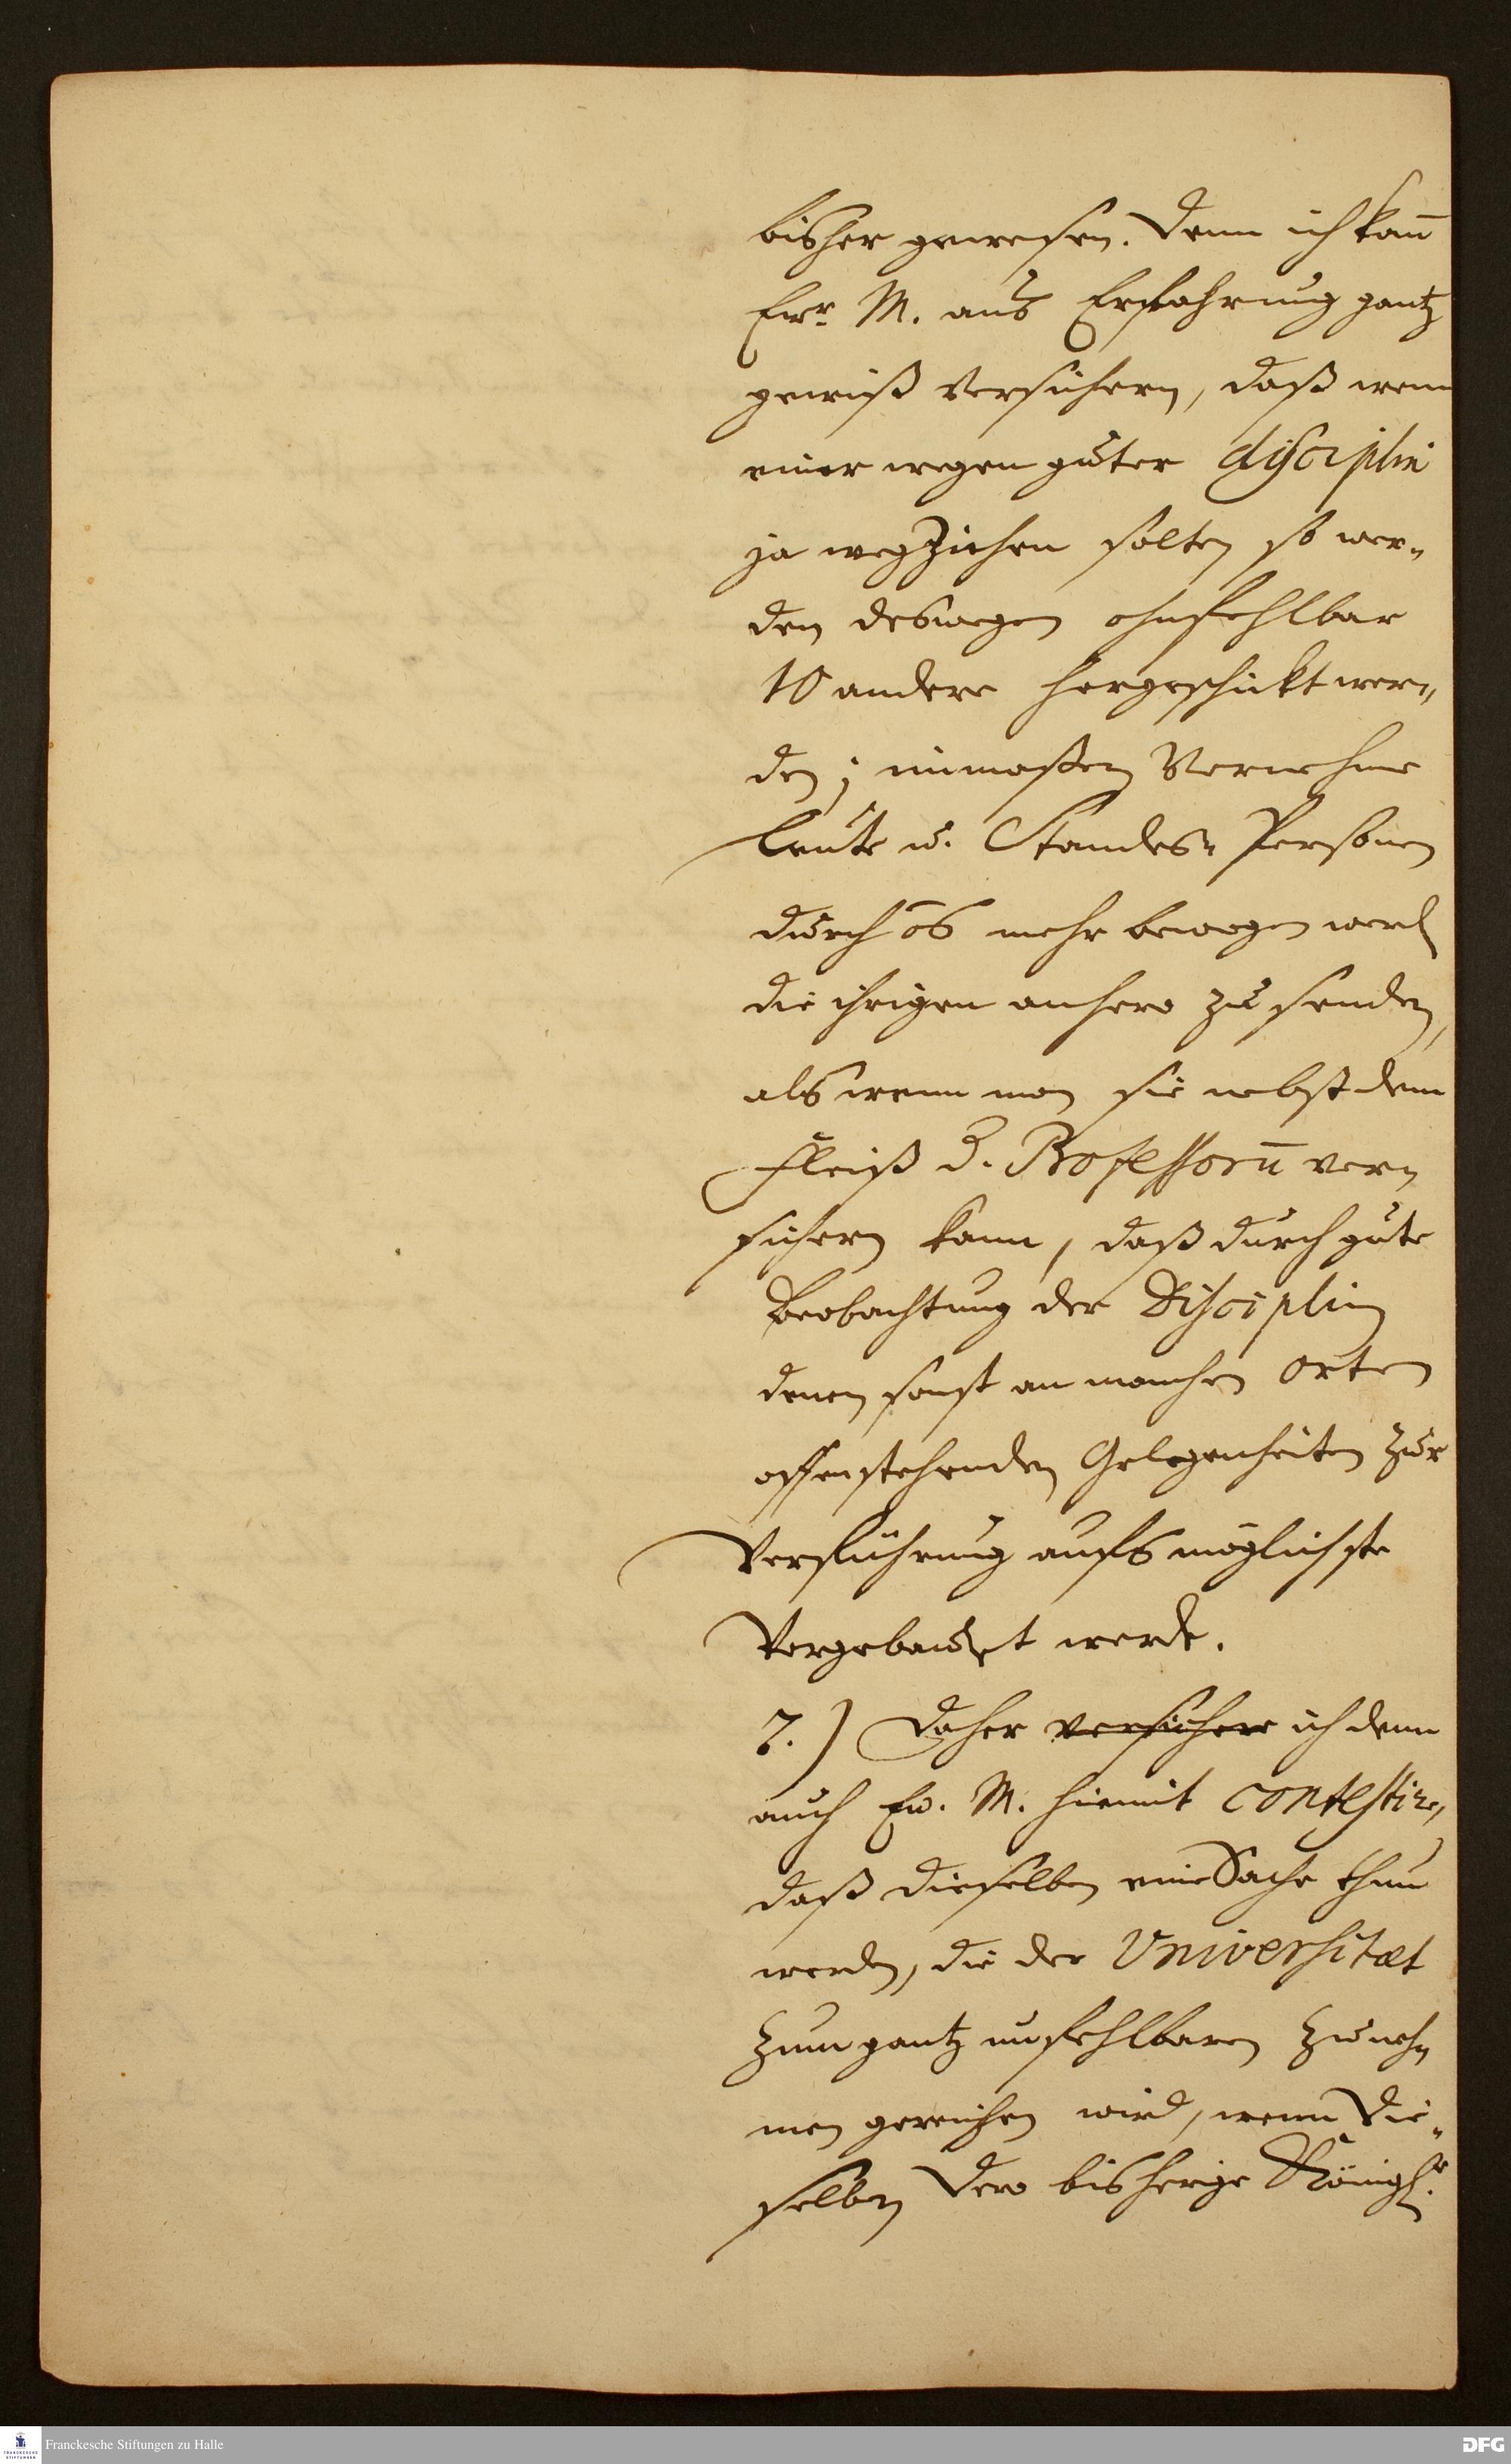 bisher gewesen. Denn ich kan̄
Ewr M. aus Erfahrung gantz
gewiß versichern, daß wenn
einer wegen guter disciplin
ja wegziehen solte, so wer-
den deswegen ohnfehlbar
10 andere hergeschickt wer-
den; immaßen Vornehme
Leute u. Standes-Personen
durch mehr bewogen werd
die ihrigen anhero zu senden,
als wenn man sie nebst dem
Fleiß d. Professorū ver-
sichern kann, daß durch gute
Beobachtung der Disciplin
denen sonst an manchen Orten
offenstehenden Gelegenheiten zur
Verführung aufs möglichste
Vorgebauet werde.
7.) Daher versichere ich denn
auch Ew. M. hiemit contestire,
daß dieselben eine Sache thun
werden, die der Universitæt
zum gantz unfehlbaren Zuneh-
men gereichen wird, wenn Die-
selben Dero bisherige Königl.
Franckesche Stiftungen zu Halle
FRANCKESCHE STIFTUNGEN
DFG